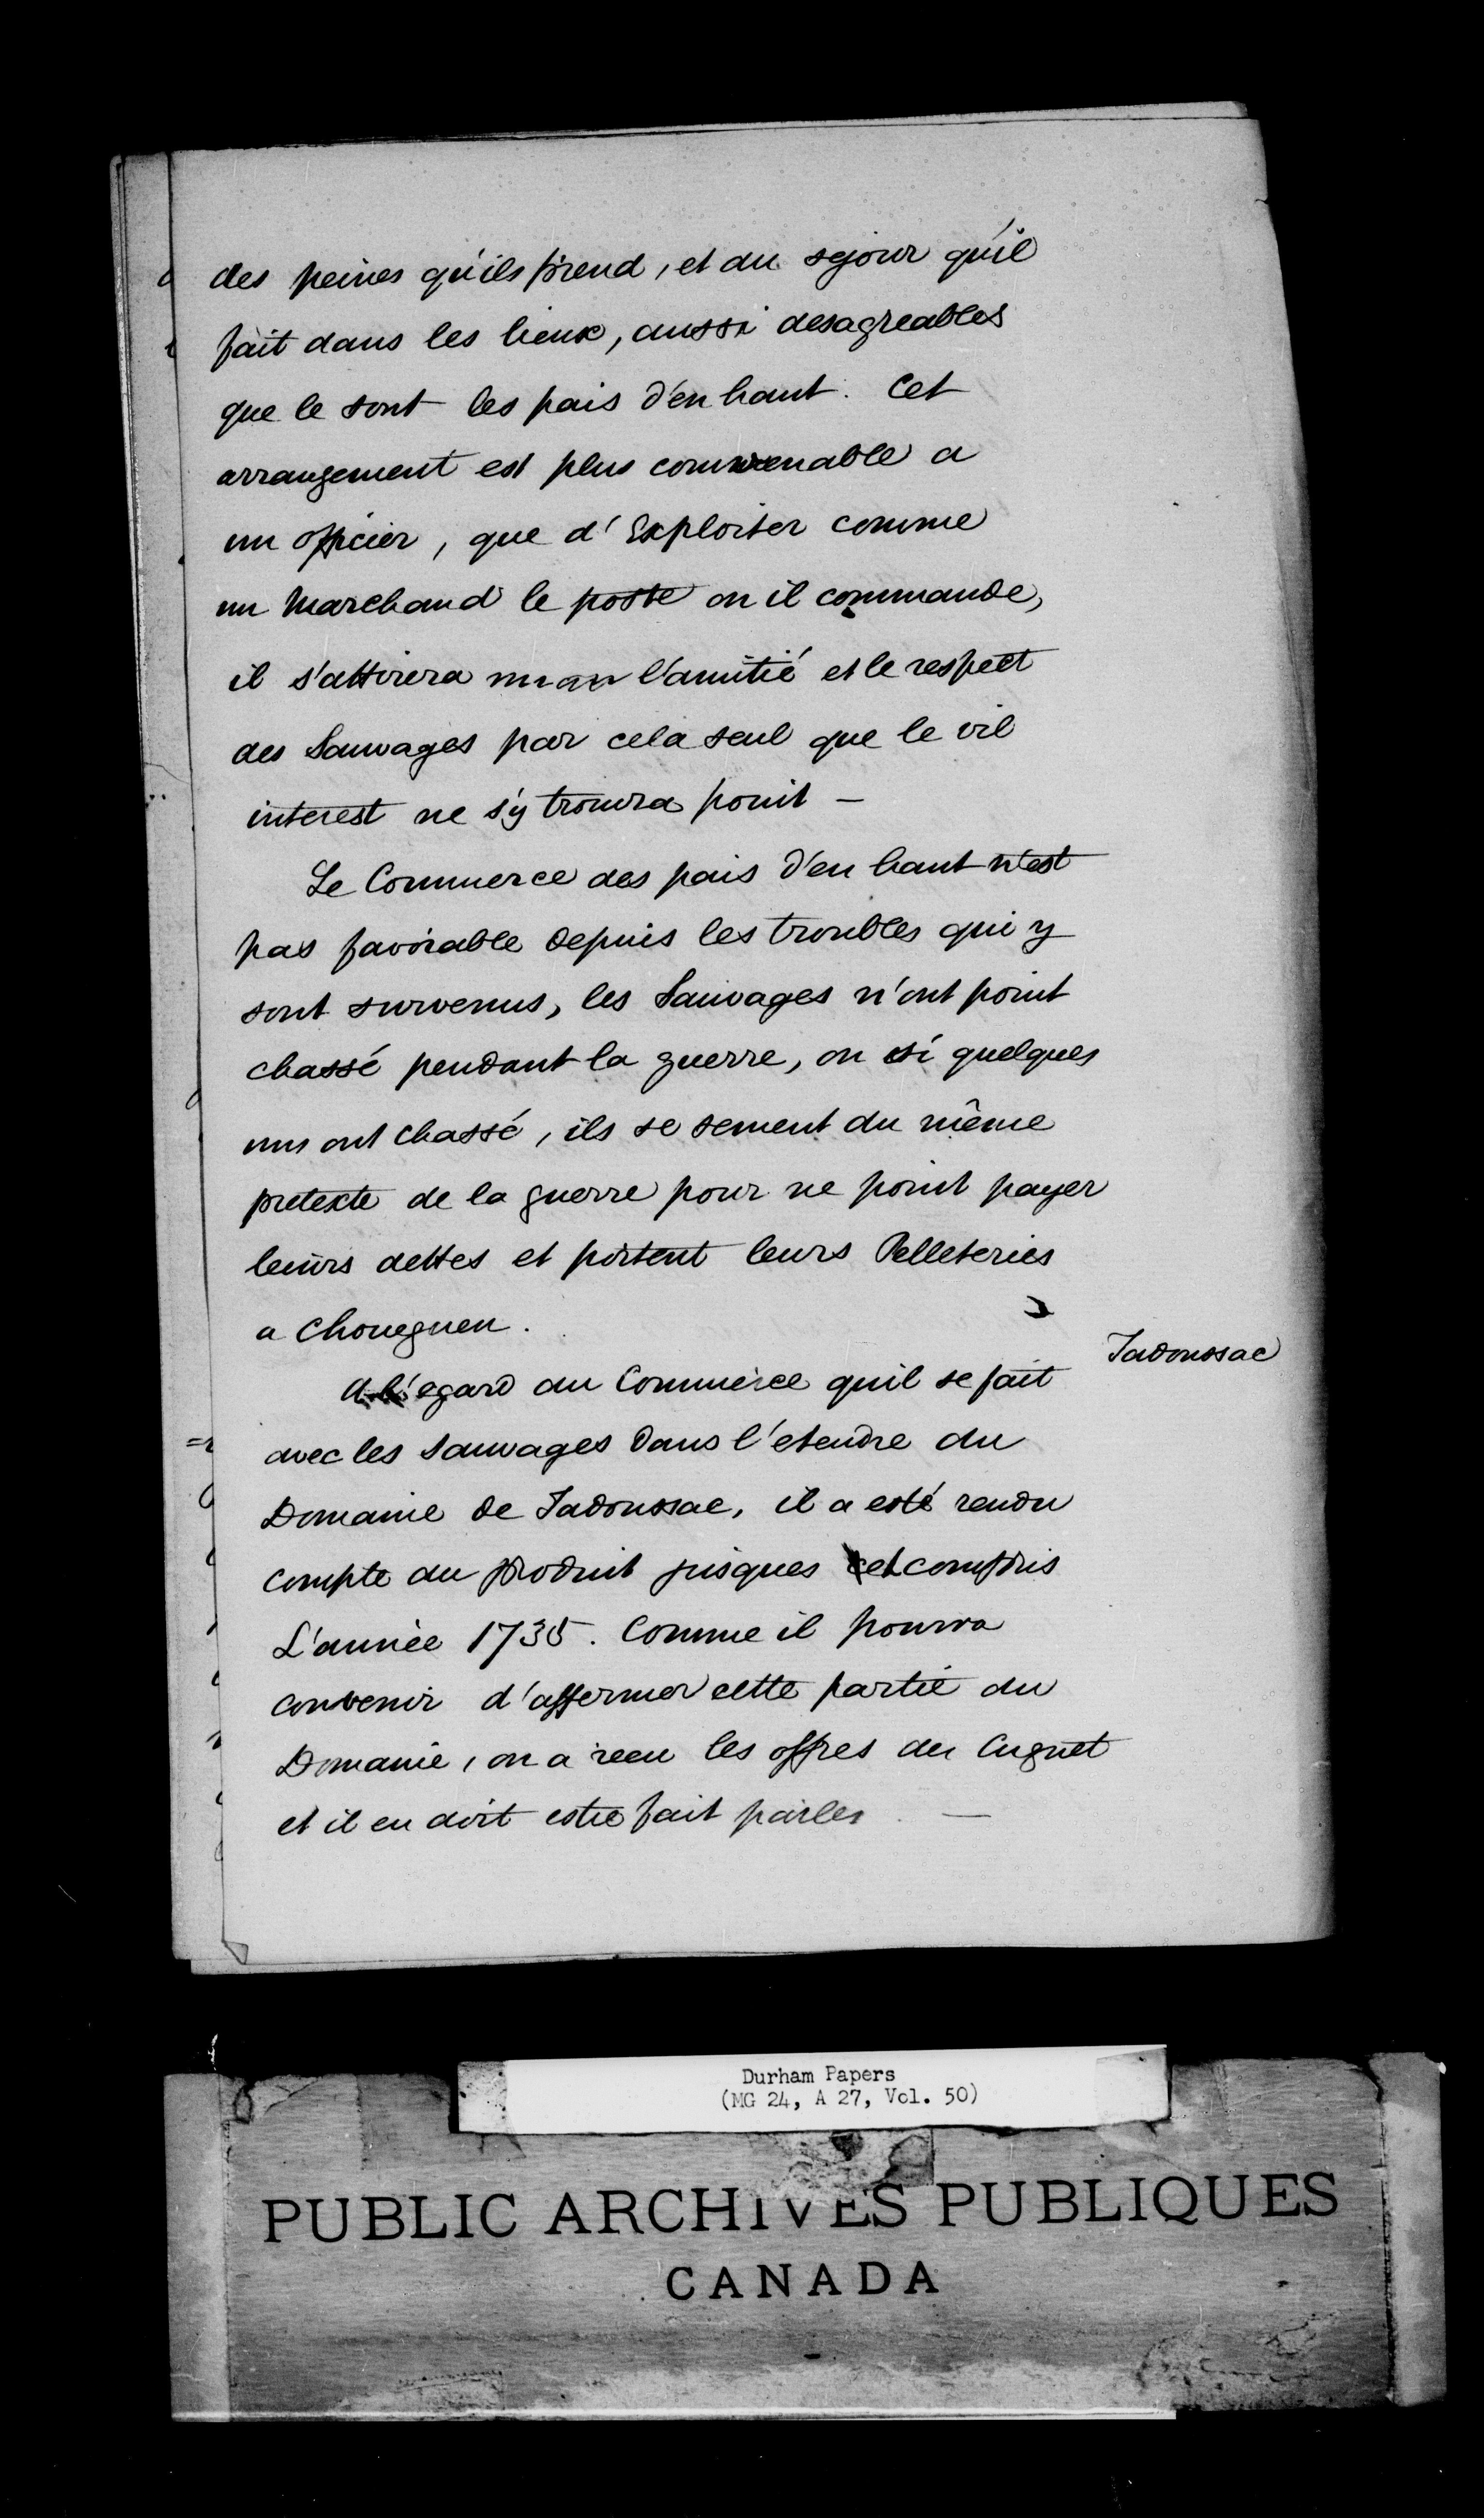 des peines qu'ils prend, et du sejour qu'il
fait dans les lieux, aussi desagreables
que le sont les pais d'en haut. Cet
arrangement est plus convenable a
un officier, que d'Exploiter comme
un Marchand le poste ou il commande,
il s'attirera l'amitié et le respect
des Sauvages par cela seul que le vil
interest ne s'y trouvra point —
Le Commerce des pais d'en haut n'est
pas favorable depuis les troubles qui y
sont survenus, les Sauvages n'ont point
chassé pendant la guerre, ou si quelques
uns ont chassé, ils se servent du même
pretexte de la guerre pour ne point payer
leurs dettes et portent leurs Pelleteries
a Choueguen.
Tadoussac
A l'egard du Commerce quil se fait
avec les Sauvages dans l'etendre du
Domaine de Tadoussac, il a esté rendu
compte du produit jusques et compris
L'année 1735. Comme il pourra
convenir d'affermer cette partie du
Domaine, on a receu les offres du Cugnet
et il en doit estre fait parler. —
Durham Papers
(MG 24, A 27, Vol. 50)
PUBLIC ARCHIVES PUBLIQUES
CANADA